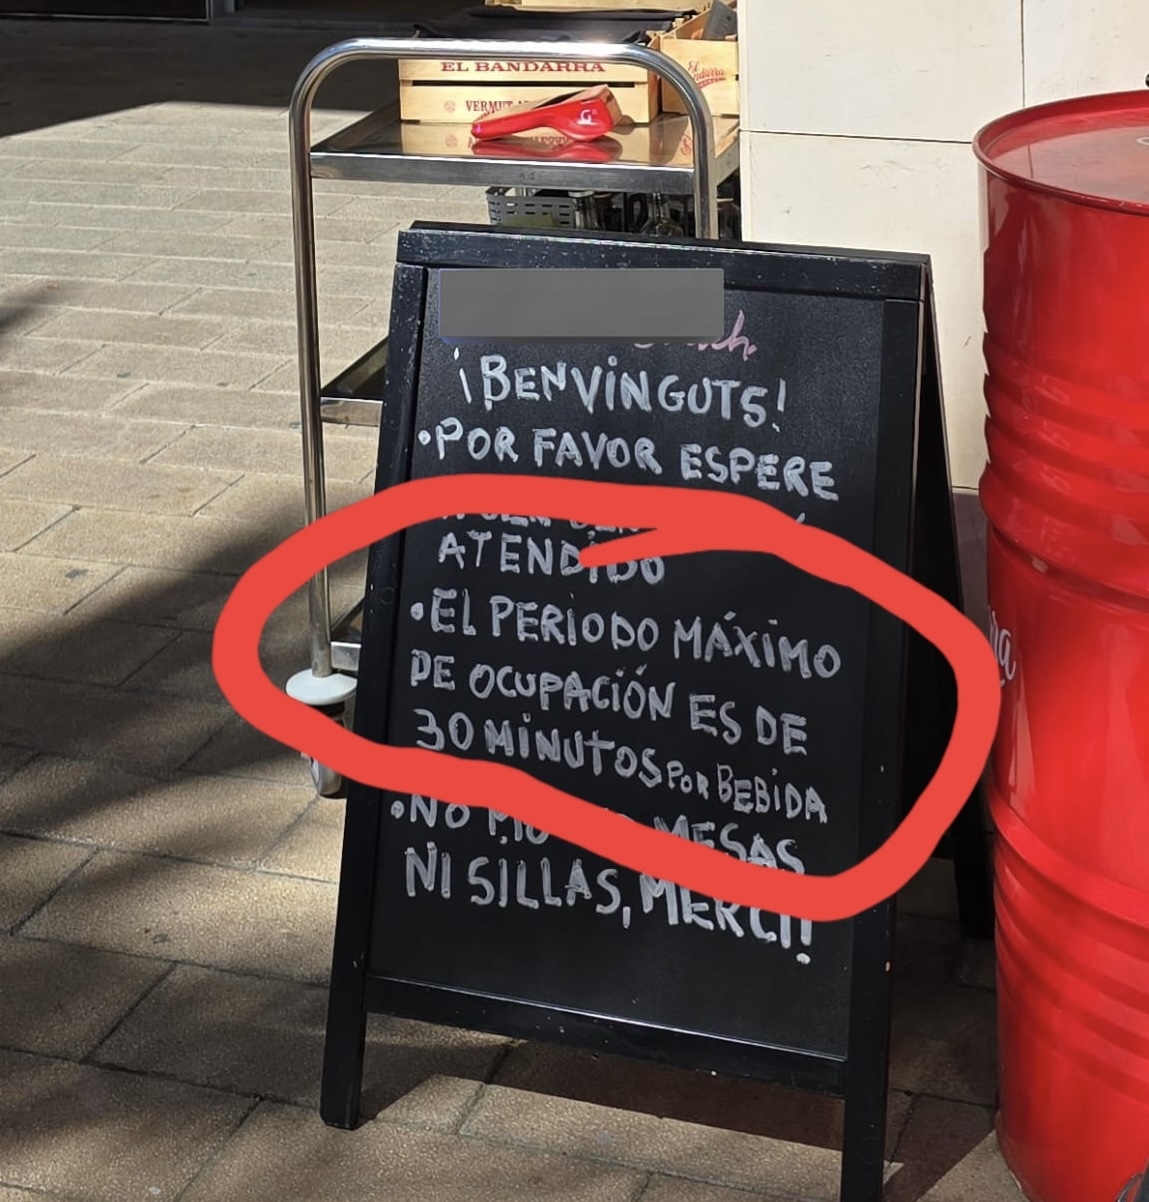 EL BANDARRA
VERMUT
El Bandarra
G
¡BENVINGUTS!
•POR FAVOR ESPERE
ATENDIDO
•EL PERIODO MÁXIMO
DE OCUPACIÓN ES DE
30 MINUTOS POR BEBIDA
•NO MESAS
NI SILLAS, MERCI!